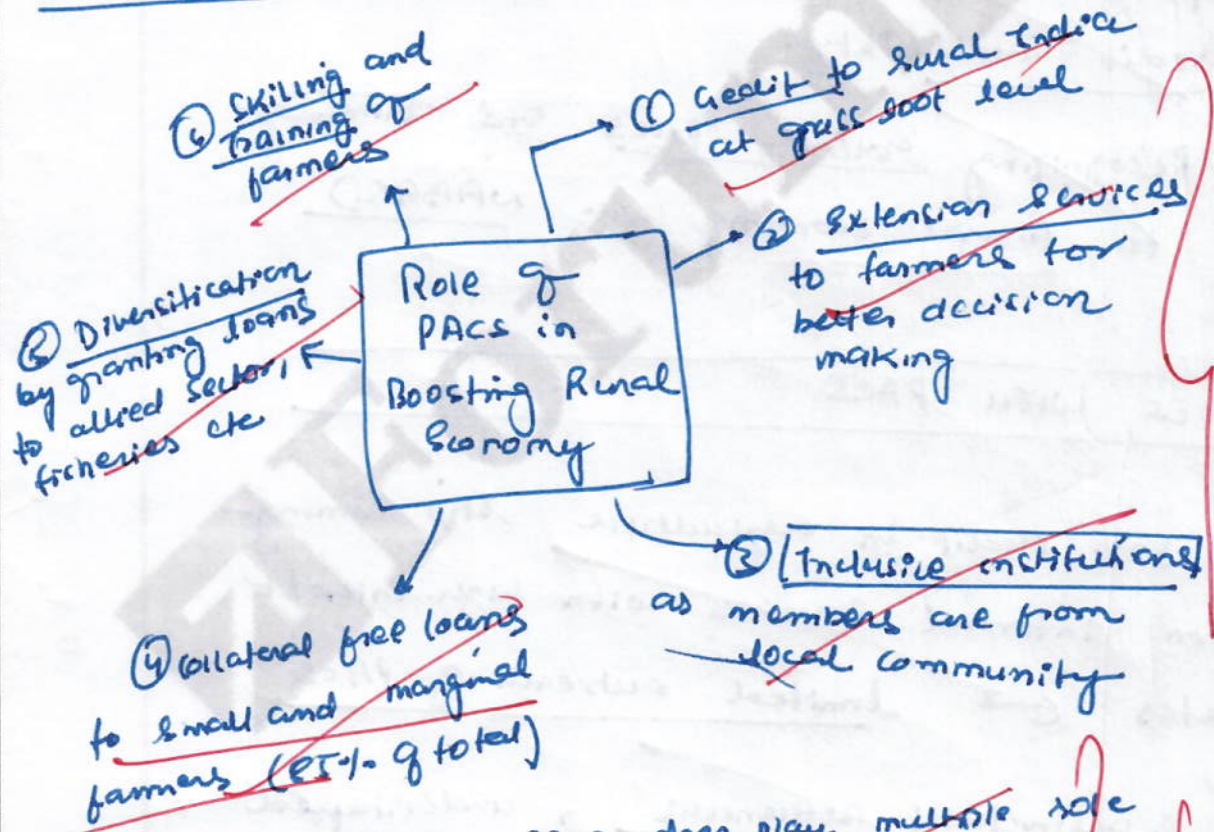 Role of
PACS in
Boosting Rural
Economy
① Credit to Rural India
at grass root level
② Extension Services
to farmers for
better decision
making
③ Inclusive institutions
as members are from
local community
④ Collateral free loans
to small and marginal
farmers (85% of total)
⑤ Diversification
by granting loans
to allied sector,
fisheries etc
⑥ Skilling and
Training of
farmers
does play multiple role
Forum